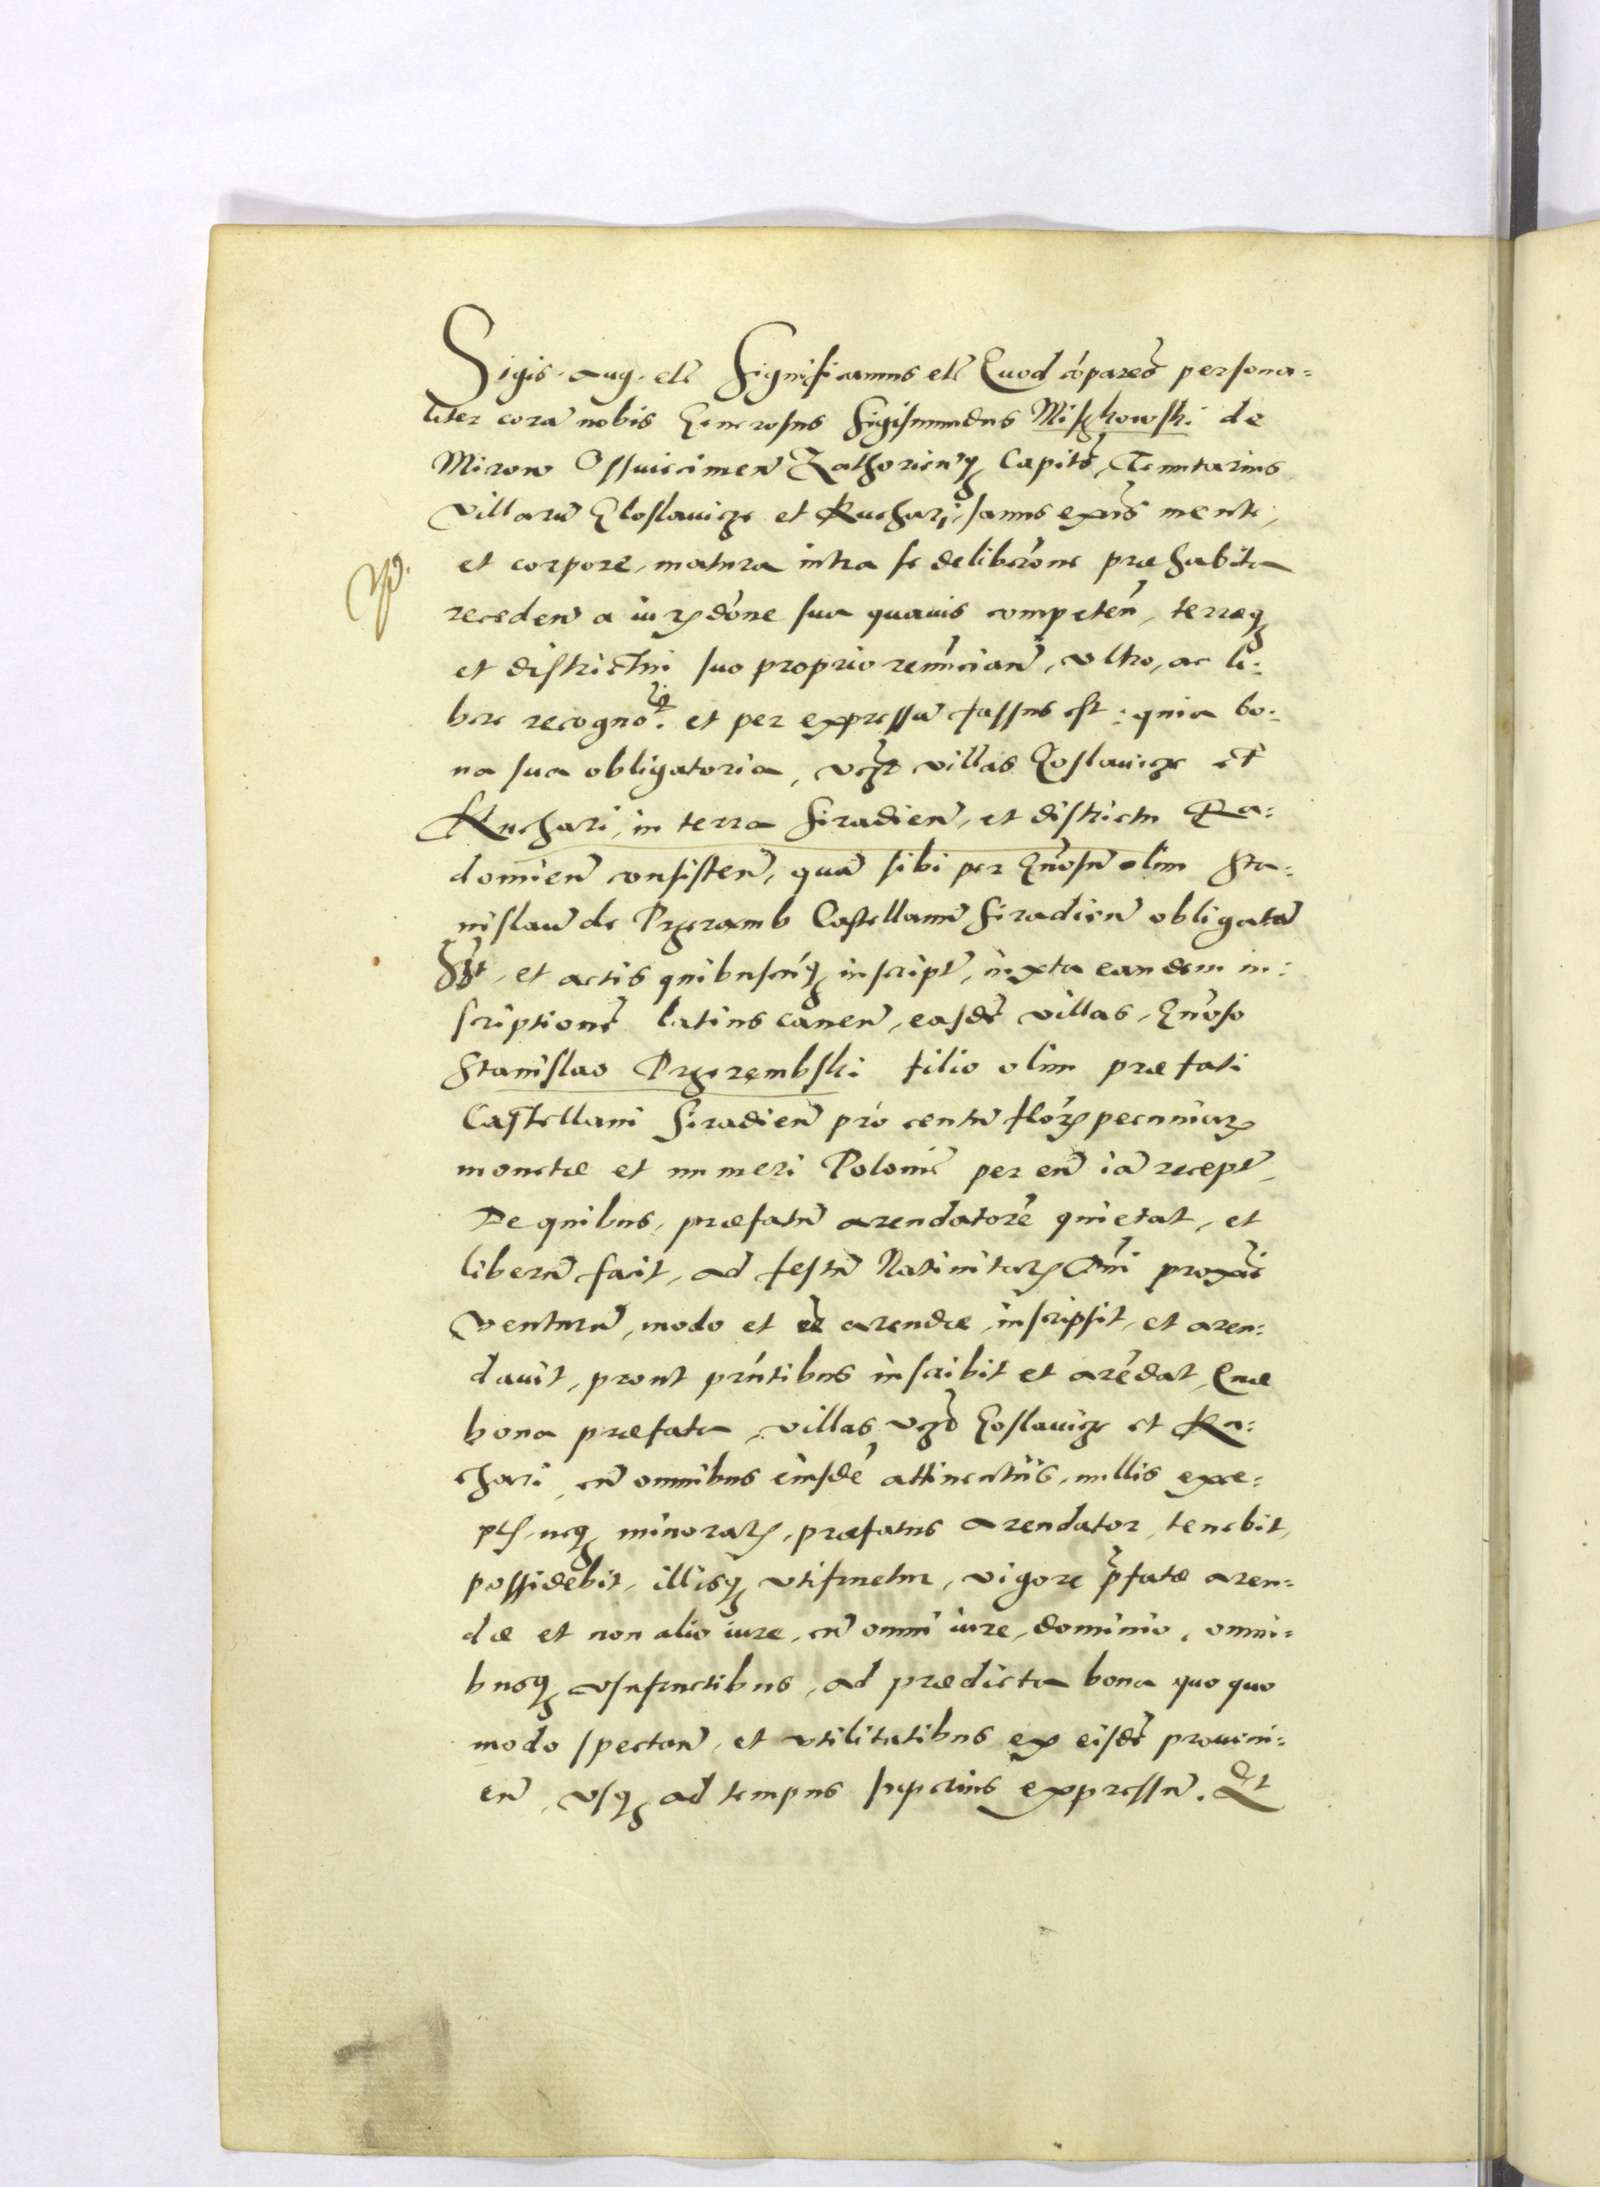 Sigis. Aug. etc̃ Significamus etc̃ Quod cōpares̃ persona=
liter corã nobis Generosus Sigismundus Miszkowski de
Mirow Osswiecimeñ Zathorieñq₃ Capits̃, Tenutarius
villarũ Gloslawicze et Kuchari, sanus exñs mente,
et corpore, matura intra se deliberõne præhabita
recedeñ a iurꝫdõne sua quavis competeñ, terræq₃
et districtui suo proprio renũcianõ, vltro, ac li=
bere recognoṽit. et per expressũ fassus est: quia bo=
na sua obligatoria, vcz̃ villas Goslawicze et
Kuchari, in terra Siradieñ, et districtu Ra=
domieñ consisteñ, quã sibi per Gñosũ olim Sta=
nislaũ de Przeramb Castellanũ Siradieñ obligatã
h̃t, et actis quibuscũq₃ inscript̃, iuxta eandem in=
scriptionẽ latius canen̄, easdẽ villas, Gñoso
Stanislao Przerembski filio olim præfati
Castellani Siradieñ pro centũ florꝫ pecuniarꝫ
monetæ et numeri Poloniẽ per eũ iã recept̃,
De quibus, præfatũ arendatorẽ quietat, et
liberũ facit, ad festũ Natiuitatꝫ Dñi proxiẽ
venturũ, modo et arendæ, inscripsit, et aren=
dauit, prout pñtibus inscribit et arẽdat, Quæ
bona præfata, villas vcz̃ Goslawicze et Ku=
chari, cũ omnibus eiusdẽ attinentiis, nullis exce=
ptꝫ, neq₃ minoratꝫ, præfatus arendator, tenebit,
possidebit, illisq₃ vtifruetur, vigore p̃fatæ aren=
dæ et non alio iure, cũ omni iure, dominio, omni=
busq₃ vsufructibus, ad prædicta bona quo quo
modo spectañ, et vtilitatibus ex eisdẽ proueni=
eñ, vsq₃ ad tempus superius expressũ. Et